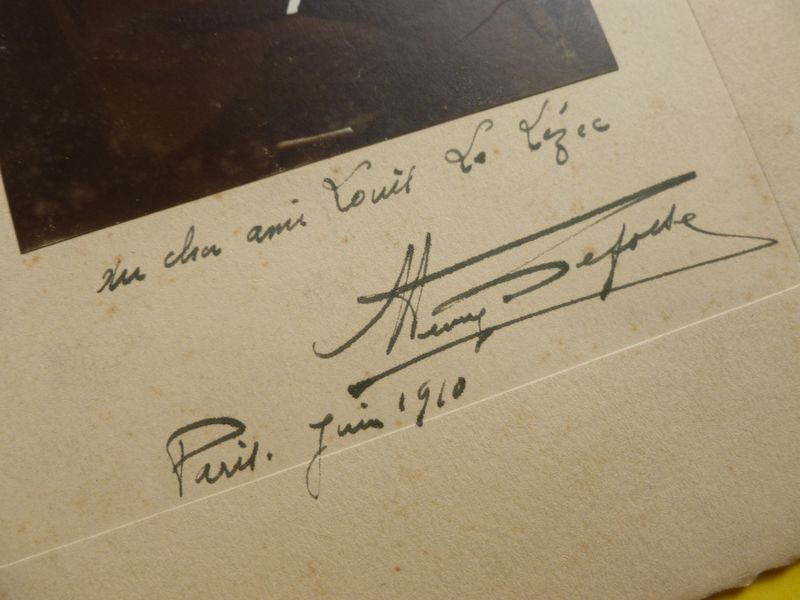 au cher ami Louis Le Lézec
Henry Defosse
Paris. Juin 1910